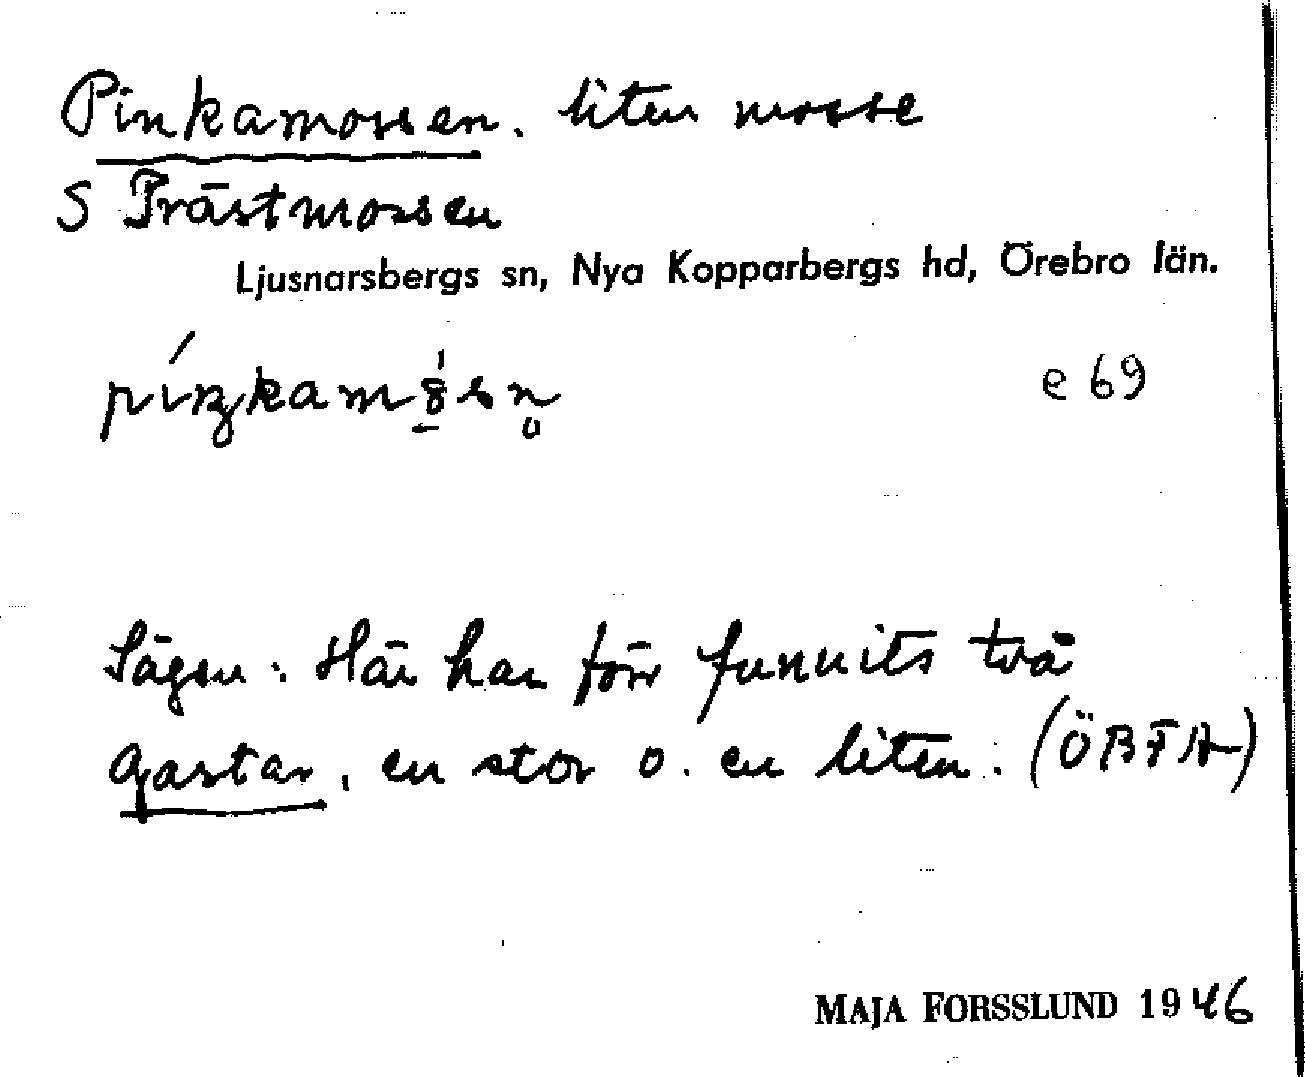 Pinkamossen. liten mosse
S Prästmossen
Ljusnarsbergs sn, Nya Kopparbergs hd, Örebro län.
e 69
Sägen: Här har förr funnits två
gastar, en stor o. en liten. (ÖBFA)
MAJA FORSSLUND 1946